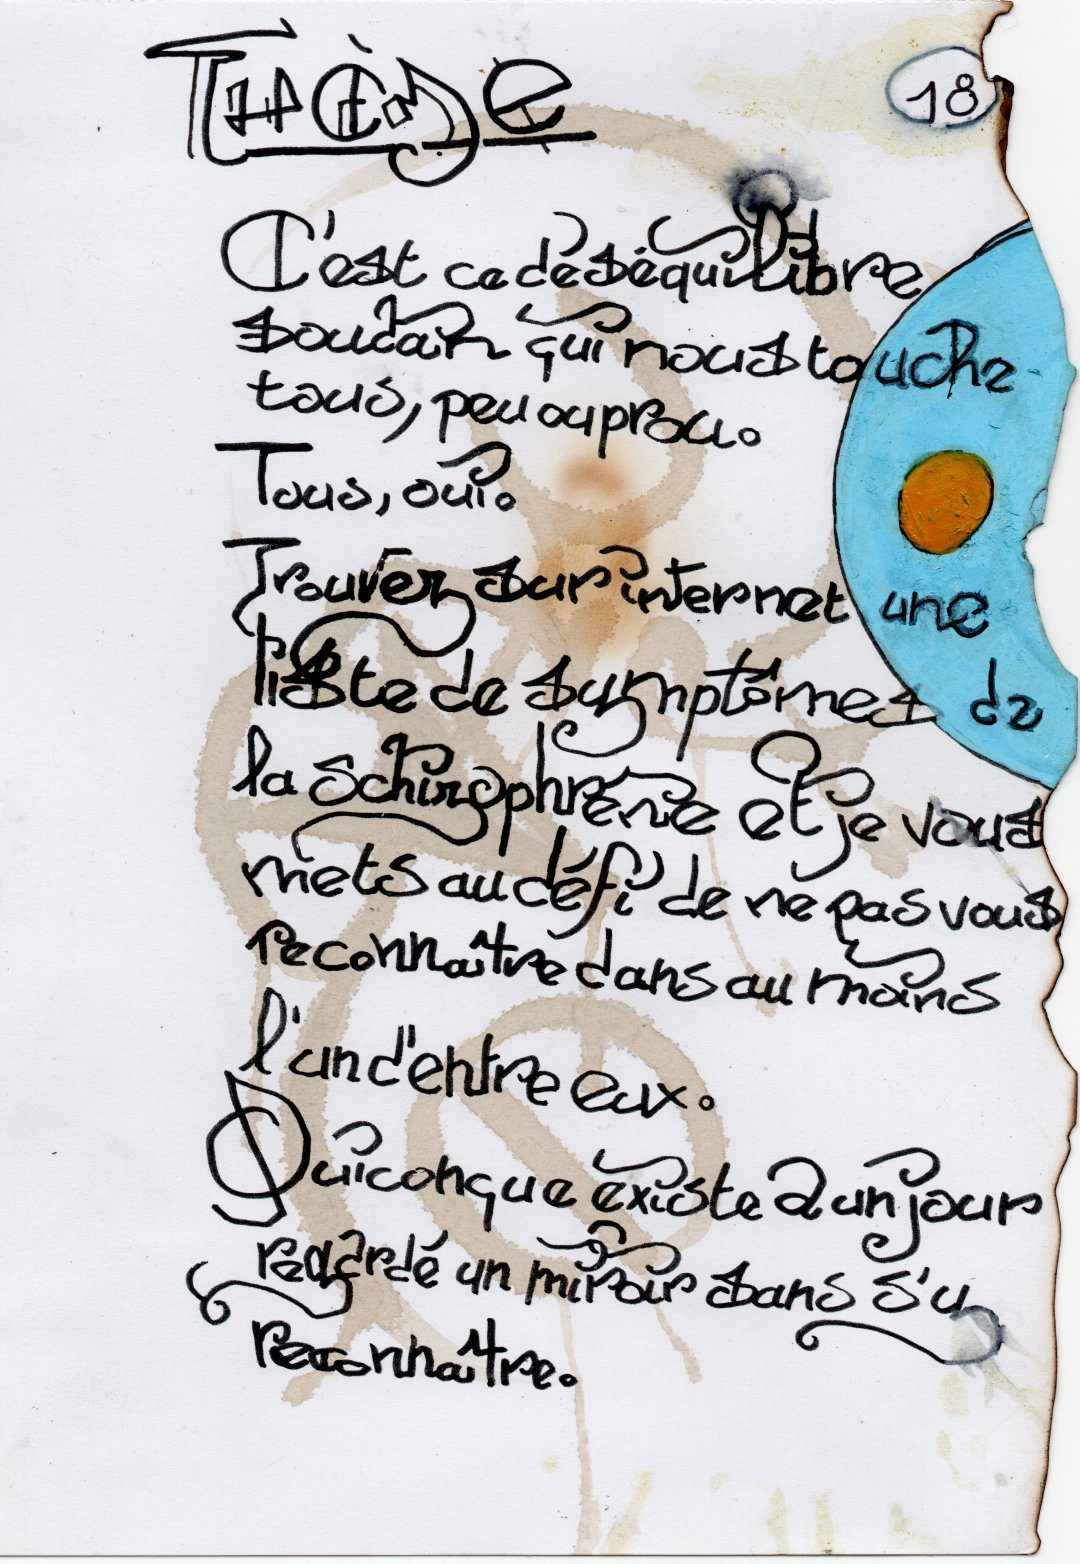 Thèse
18
C'est ce déséquilibre
soudain qui nous touche
tous, peu ou prou.
Tous, oui.
Trouvez sur internet une
liste de symptômes de
la schizophrénie et je vous
mets au défi de ne pas vous
reconnaître dans au moins
l'un d'entre eux.
Quiconque existe a un jour
regardé un miroir sans s'y
reconnaître.